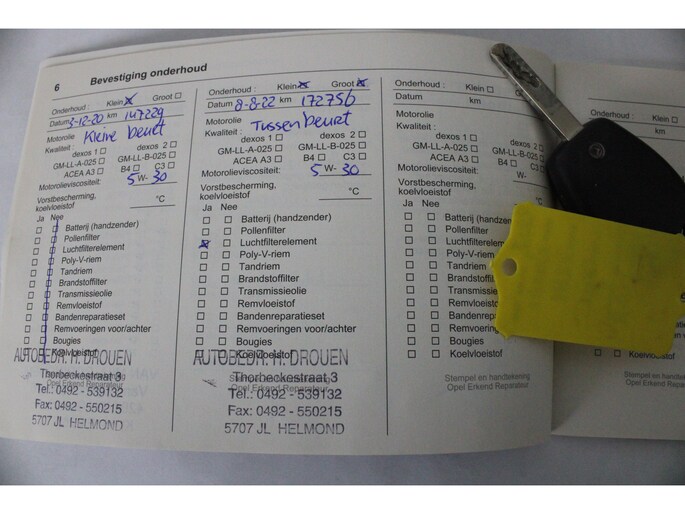 6 Bevestiging onderhoud
Onderhoud : Klein Groot
Datum 3-12-20 km 147229
Motorolie Kleine beurt
Kwaliteit :
dexos 1 dexos 2
GM-LL-A-025 GM-LL-B-025
ACEA A3 B4 C3
Motorolieviscositeit: 5 W- 30
Vorstbescherming,
koelvloeistof °C
Ja Nee
Batterij (handzender)
Pollenfilter
Luchtfilterelement
Poly-V-riem
Tandriem
Brandstoffilter
Transmissieolie
Remvloeistof
Bandenreparatieset
Remvoeringen voor/achter
Bougies
Koelvloeistof
AUTOBEDR. H. DROUEN
Thorbeckestraat 3
Opel Erkend Reparateur
Tel.: 0492 - 539132
Fax: 0492 - 550215
5707 JL HELMOND
Onderhoud : Klein Groot
Datum 8-8-22 km 172756
Motorolie
Kwaliteit : Tussenbeurt
dexos 1 dexos 2
GM-LL-A-025 GM-LL-B-025
ACEA A3 B4 C3
Motorolieviscositeit: 5 W- 30
Vorstbescherming,
koelvloeistof °C
Ja Nee
Batterij (handzender)
Pollenfilter
Luchtfilterelement
Poly-V-riem
Tandriem
Brandstoffilter
Transmissieolie
Remvloeistof
Bandenreparatieset
Remvoeringen voor/achter
Bougies
Koelvloeistof
AUTOBEDR. H. DROUEN
Thorbeckestraat 3
Stempel en handtekening
Opel Erkend Reparateur
Tel.: 0492 - 539132
Fax: 0492 - 550215
5707 JL HELMOND
Onderhoud : Klein Groot
Datum km
Motorolie
Kwaliteit :
dexos 1 dexos 2
GM-LL-A-025 GM-LL-B-025
ACEA A3 B4 C3
Motorolieviscositeit: W-
Vorstbescherming,
koelvloeistof °C
Ja Nee
Batterij (handzender)
Pollenfilter
Luchtfilterelement
Poly-V-riem
Tandriem
Brandstoffilter
Transmissieolie
Remvloeistof
Bandenreparatieset
Remvoeringen voor/achter
Bougies
Koelvloeistof
Stempel en handtekening
Opel Erkend Reparateur